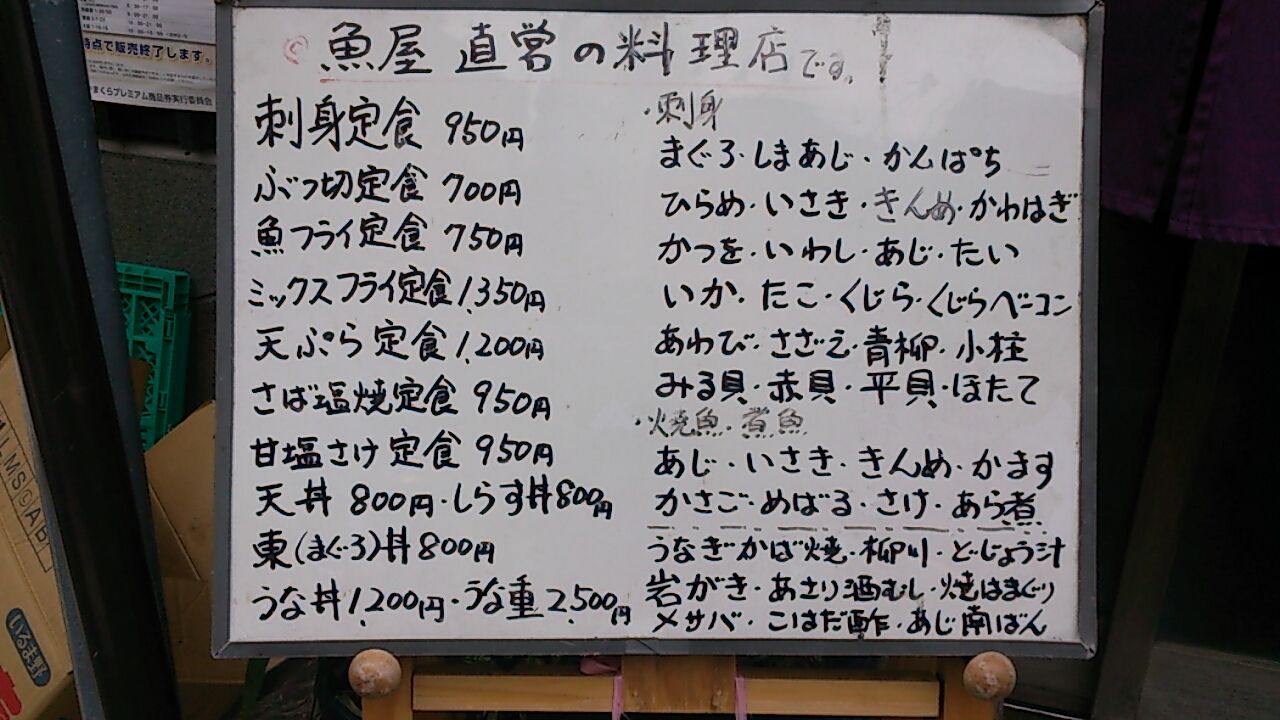 時点で販売終了します。
まくらプレミアム商品券実行委員会
魚屋 直営の料理店です。
刺身定食 950円
ぶつ切定食 700円
魚フライ定食 750円
ミックスフライ定食 1,350円
天ぷら定食 1,200円
さば塩焼定食 950円
甘塩さけ定食 950円
天丼 800円・しらす丼800円
東(まぐろ)丼 800円
うな丼 1,200円・うな重 2,500円
・刺身
まぐろ・しまあじ・かんぱち
ひらめ・いさき・きんめ・かわはぎ
かつを・いわし・あじ・たい
いか・たこ・くじら・くじらベーコン
あわび・さざえ・青柳・小柱
みる貝・赤貝・平貝・ほたて
・焼魚・煮魚
あじ・いさき・きんめ・かます
かさご・めばる・さけ・あら煮
うなぎかば焼・柳川・どじょう汁
岩がき・あさり酒むし・焼はまぐり
〆サバ・こはだ酢・あじ南ばん
いるま野